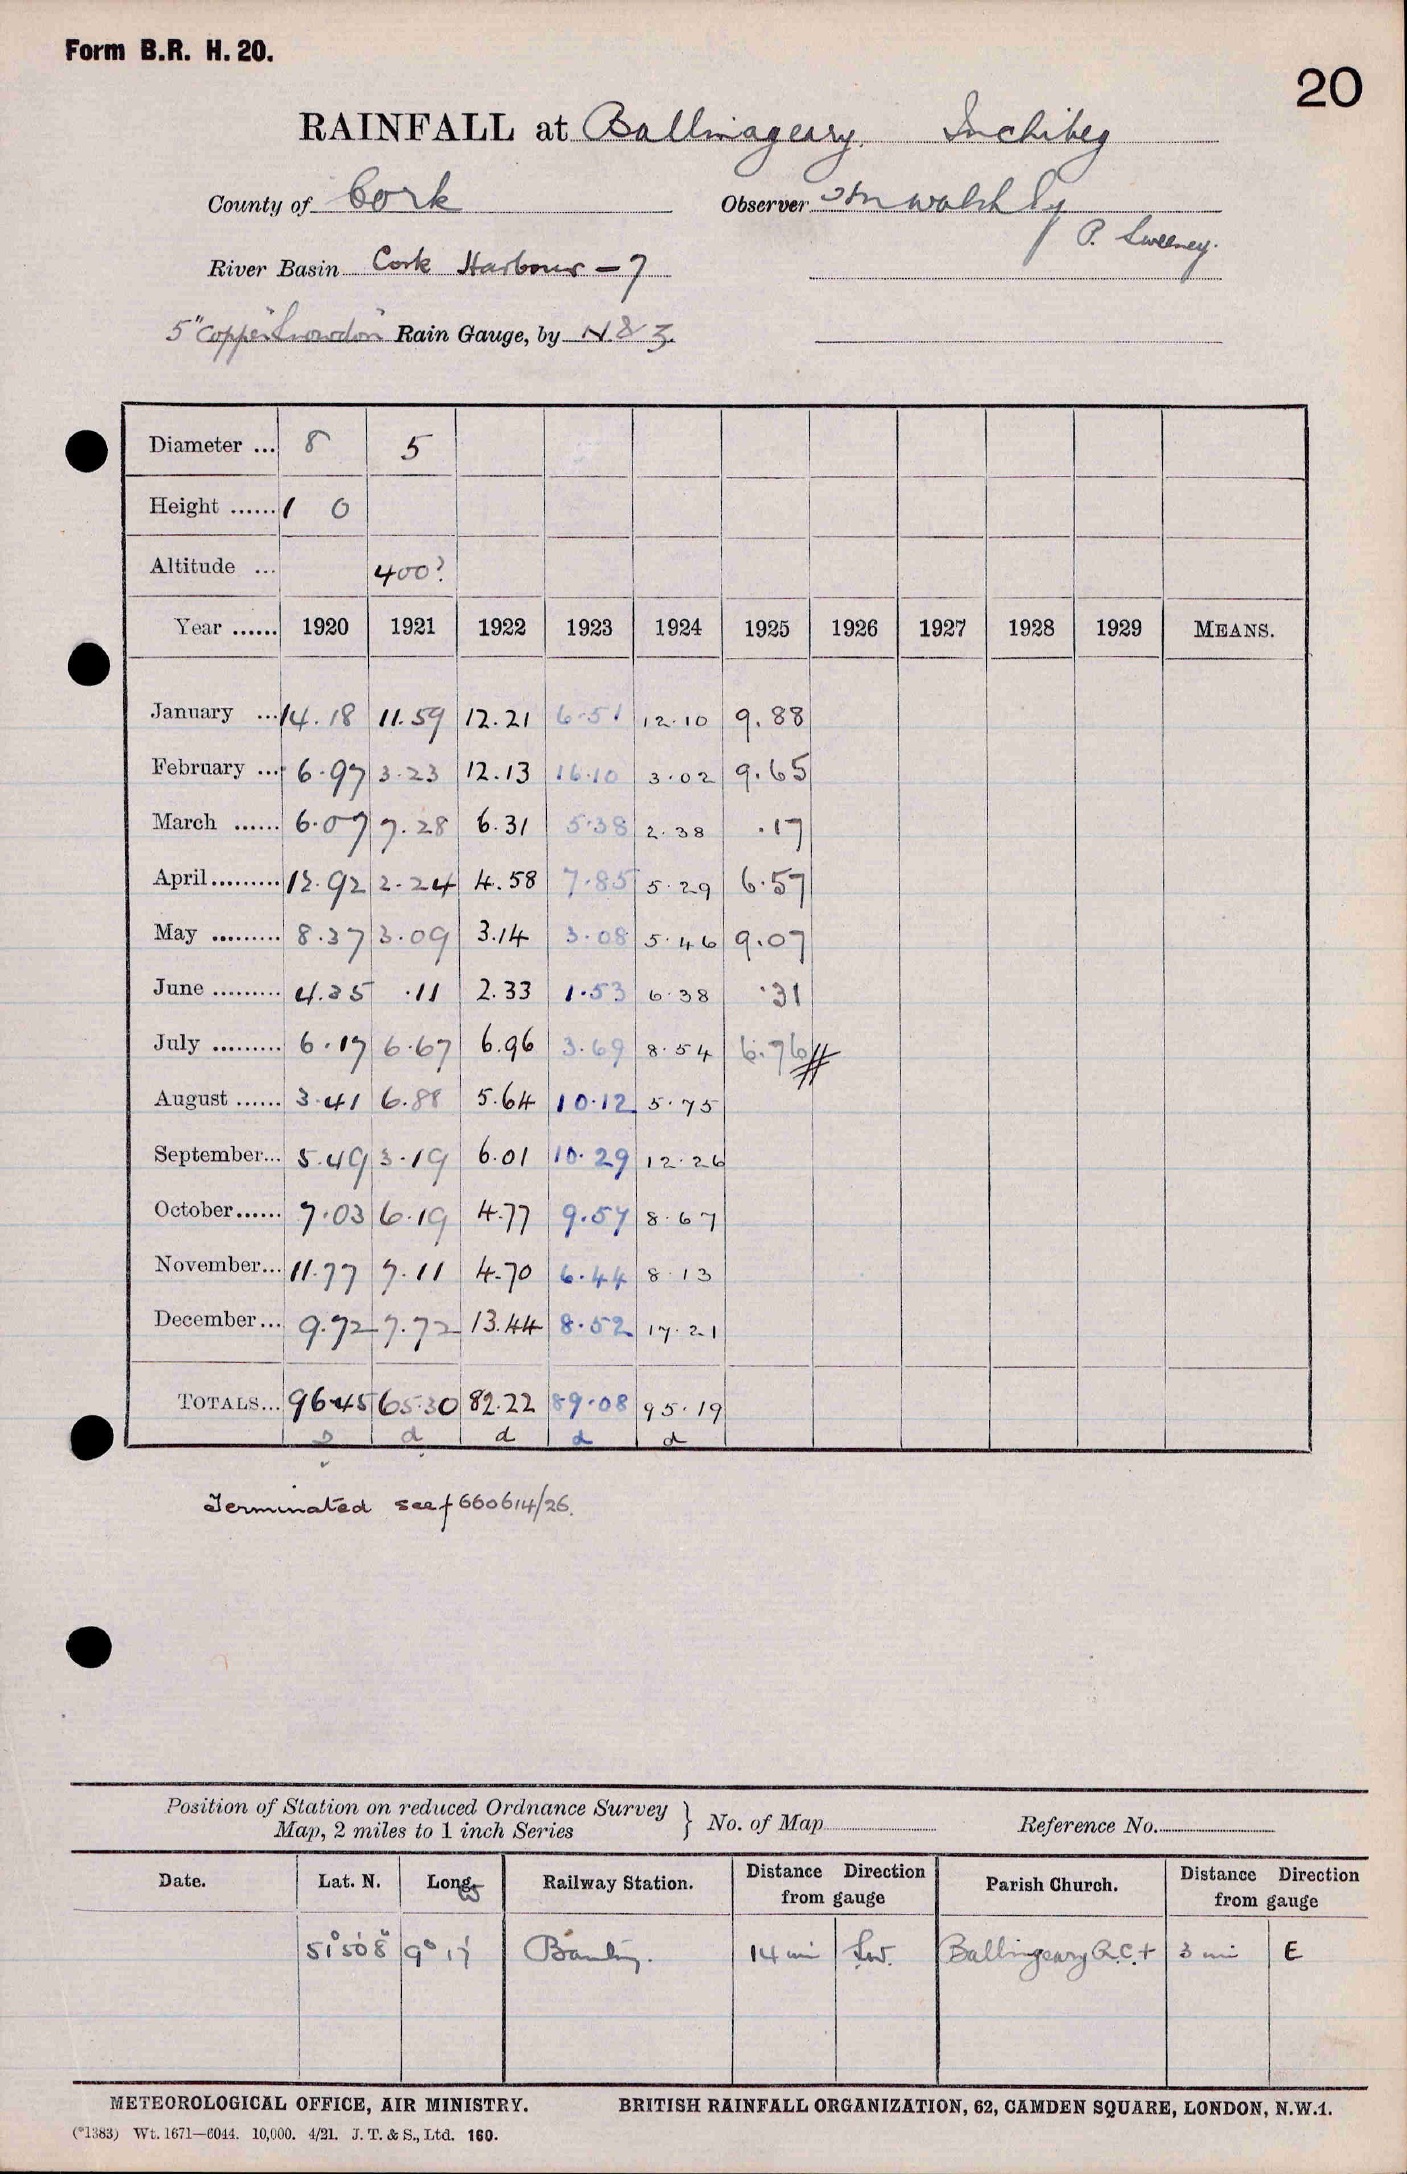 Form B.R. H. 20.
20
RAINFALL at Ballinageary. Inchibeg
County of Cork Observer Walsh Esq
P. Sweeney.
River Basin Cork Harbour - 7
5" Copper "Snowdon" Rain Gauge, by N. & Z.
Diameter ... 8 5
Height ...... 1 0
Altitude ... 400?
Year ...... 1920 1921 1922 1923 1924 1925 1926 1927 1928 1929 MEANS.
January ... 14.18 11.59 12.21 6.51 12.10 9.88
February ... 6.97 3.23 12.13 16.10 3.02 9.65
March ...... 6.07 7.28 6.31 5.38 2.38 .17
April......... 12.92 2.24 4.58 7.85 5.29 6.57
May ......... 8.37 3.09 3.14 3.08 5.46 9.07
June ......... 4.35 .11 2.33 1.53 6.38 .31
July ......... 6.17 6.67 6.96 3.69 8.54 6.76 #
August ...... 3.41 6.88 5.64 10.12 5.75
September... 5.49 3.19 6.01 10.29 12.26
October...... 7.03 6.19 4.77 9.57 8.67
November... 11.77 7.11 4.70 6.44 8.13
December... 9.72 7.72 13.44 8.52 17.21
TOTALS... 96.45 65.30 82.22 89.08 95.19
d d d d
Terminated see f 660614/26.
Position of Station on reduced Ordnance Survey
Map, 2 miles to 1 inch Series } No. of Map Reference No.
Date. Lat. N. Long. W Railway Station. Distance Direction from gauge Parish Church. Distance Direction from gauge
51° 50' 8" 9° 17' Bantry. 14 mi S.W. Ballingeary R.C.+ 3 mi E
METEOROLOGICAL OFFICE, AIR MINISTRY. BRITISH RAINFALL ORGANIZATION, 62, CAMDEN SQUARE, LONDON, N.W.1.
(*1383) Wt. 1671—6044. 10,000. 4/21. J. T. & S., Ltd. 160.